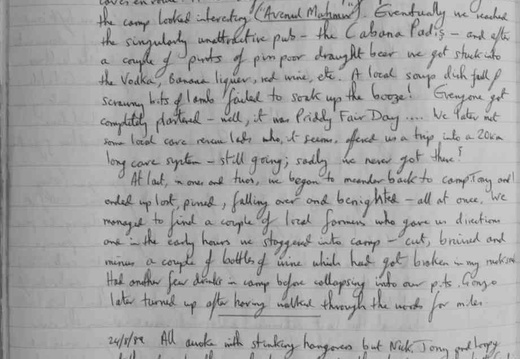 the camp looked interesting ("Avenul Mahman"). Eventually we reached
the singularly unattractive pub - the Cabana Padiş - and after
a couple of pints of piss poor draught beer we got stuck into
the Vodka, Banana liquer, red wine, etc. A local soup dish full of
scrawny bits of lamb failed to soak up the booze! Everyone got
completely plastered - well, it was Priddy Fair Day .... We later met
some local cave rescue lads who, it seems, offered us a trip into a 20km
long cave system - still going; sadly we never got there!
At last, in ones and twos, we began to meander back to camp. Tony and I
ended up lost, pissed, falling over and benighted - all at once. We
managed to find a couple of local farmers who gave us directions
and in the early hours we staggered into camp - cut, bruised and
minus a couple of bottles of wine which had got broken in my rucksack.
Had another few drinks in camp before collapsing into our pits. Gonzo
later turned up after having walked through the woods for miles.
All awoke with stinking hangovers but Nick. Tony and